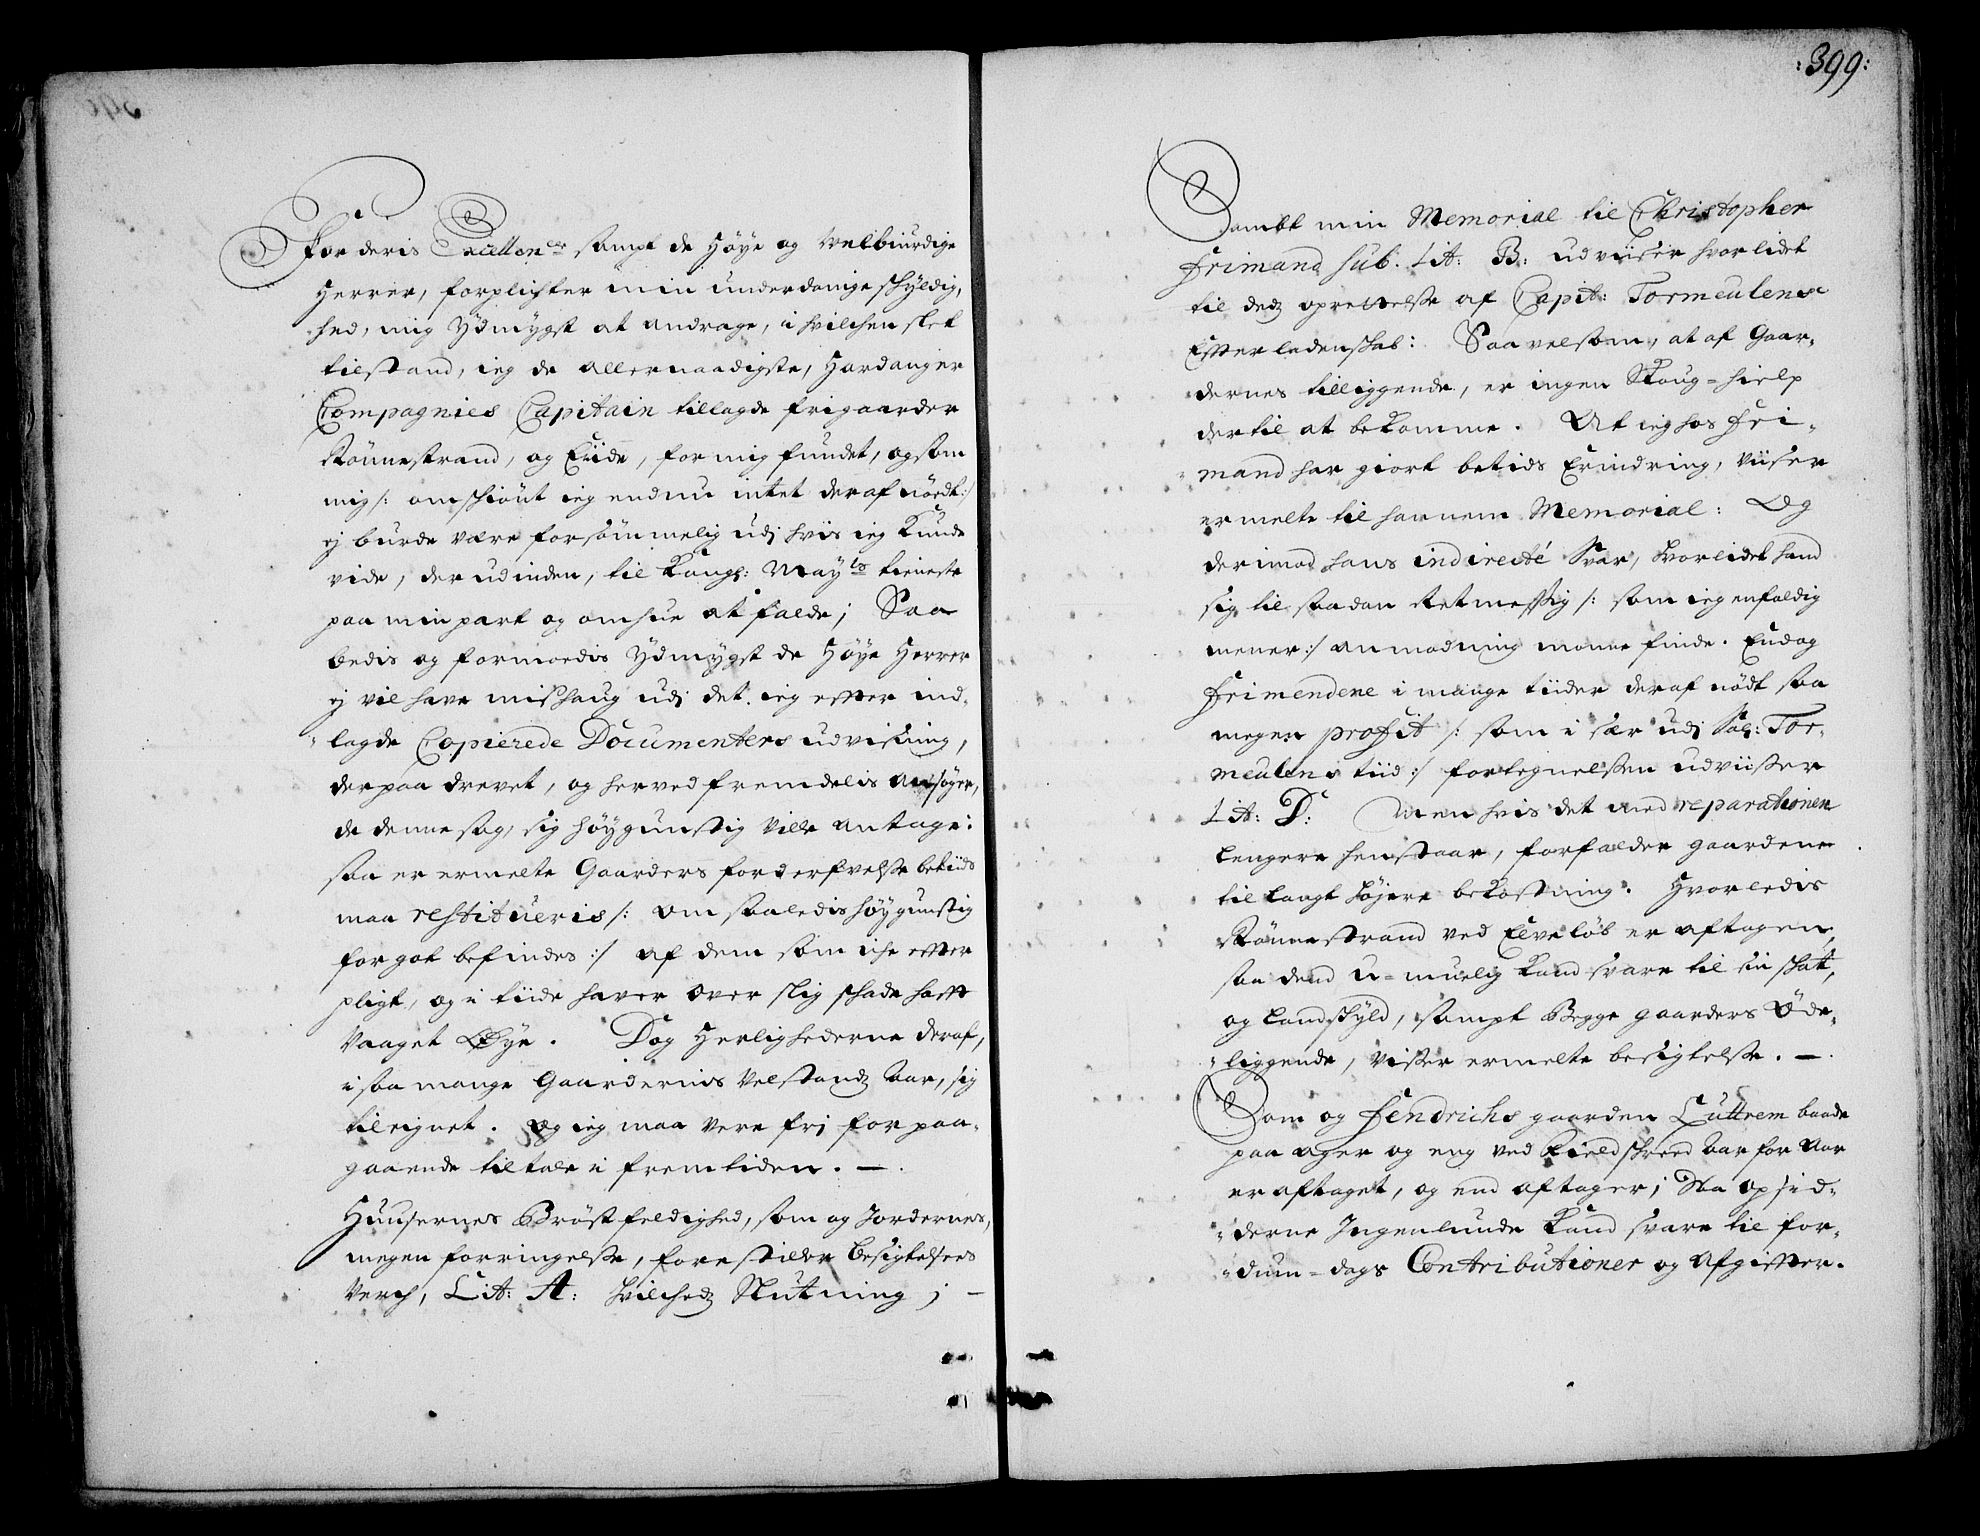 For deris Excellencer sampt de Høye og Velbiurdige
Herrer, forplichter min underdanige schyldig,
hed, mig Ydmygst at andrage, i hvilchen slet
tilstand, ieg de allernaadigste, Hardanger
Compagnies Capitain tillagde frigaarder
Rønnestrand, og Eide, for mig fundet, og som
mig /: omschiønt ieg endnu intet deraf nødt :/
ej burde være forsømmelig udj hvis ieg kunde
vide, der udinden, til Kongl: Mayts tieneste
paa min part og omhue at falde; Saa
bedis og formoedis Ydmygst de Høye Herrer
ej vil have mishaug udj det ieg efter ind-
lagde Copierede Documenters udvisning,
derpaa drevet, og herved fremdelis ansøger,
de denne sag, sig høygunstig ville antage:
saa er ermelte Gaarders forderfvelse betids
maa restitueris /: om saaledis høygunstig
for got befindes :/ af dem som iche efter
pligt, og i tiide haver over slig schade haft
Vaaget Øye. Dog Herlighederne deraf,
i saa mange Gaardernis Velstands aar, sig
tileignet. Og ieg maa vere frj for paa-
gaaende tiltale i fremtiden. —.
Huusernes Brøstfeldighed, som og Jordernes,
megen forringelse, forestiller besigtelsens
Verch, Lit: A: hvilchedz Slutning; —
:399:
Sambt min Memorial til Christopher
Frimand sub. Lit: B: udviiser hvor lidet
til dedz oprettelse af Capit: Tormeulens
Efterladenskab: Saavelsom, at af Gaar-
dernes tilliggende, er ingen Skoug-hielp
dertil at bekomme. At ieg hos Fri-
mand har giort betids Erindring, viiser
ermelte til hannem Memorial: Og
derimod hans indirecté Svar, hvorlidet hand
sig til saadan Retmessig /: som ieg enfoldig
mener :/ anmodning monne finde. Endog
Frimendene i mange tiider deraf nødt saa
megen profit /: som i sær udj Sal: Tor-
meulens tiid :/ fortegnelsen udviiser
Lit: D: Men hvis det med reparationen
lengere henstaar, forfalder gaardene
til langt høyere bekostning. Hvorledis
Rønnestrand ved Elveløb er aftagen,
saa dend u-muelig kand svare til sin skat,
og Landskyld, sampt Begge gaarders Øde-
liggende, viser ermelte besigtelse. —.
Som og Fendrichs gaarden Luttrem baade
paa ager og eng ved Field schreed aar for aar
er aftaget, og end aftager; Saa opsid-
derne Ingenlunde kand svare til for-
dum-dags Contributioner og Afgifter.